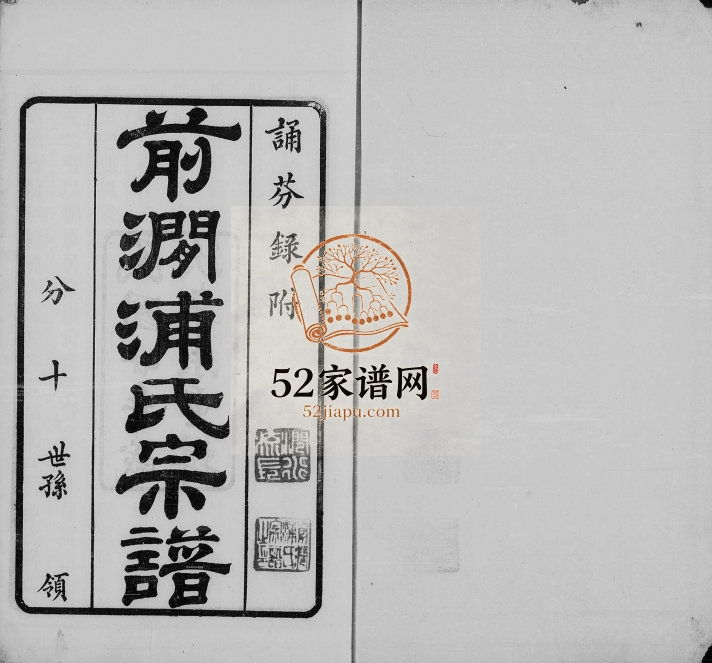 誦芬錄附
前澗浦氏宗譜
分十世孫領
52家谱网
52jiapu.com